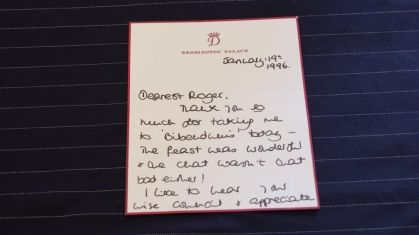 D
KENSINGTON PALACE
January. 19th
1996.
Dearest Roger,
Thank you so
much for taking me
to 'Bibendum' today -
the feast was wonderful
& the chat wasn't that
bad either!
I like to hear your
wise council & appreciate